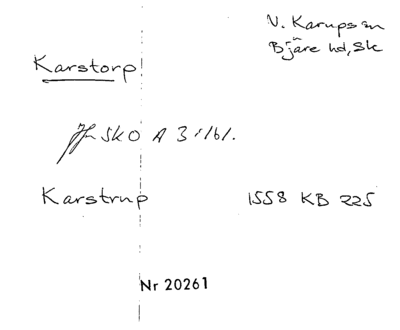 V. Karups sn
Bjäre hd, Sk
Karstorp
Jfr SkO A 3 s 161.
Karstrup 1558 KB 225
Nr 20261